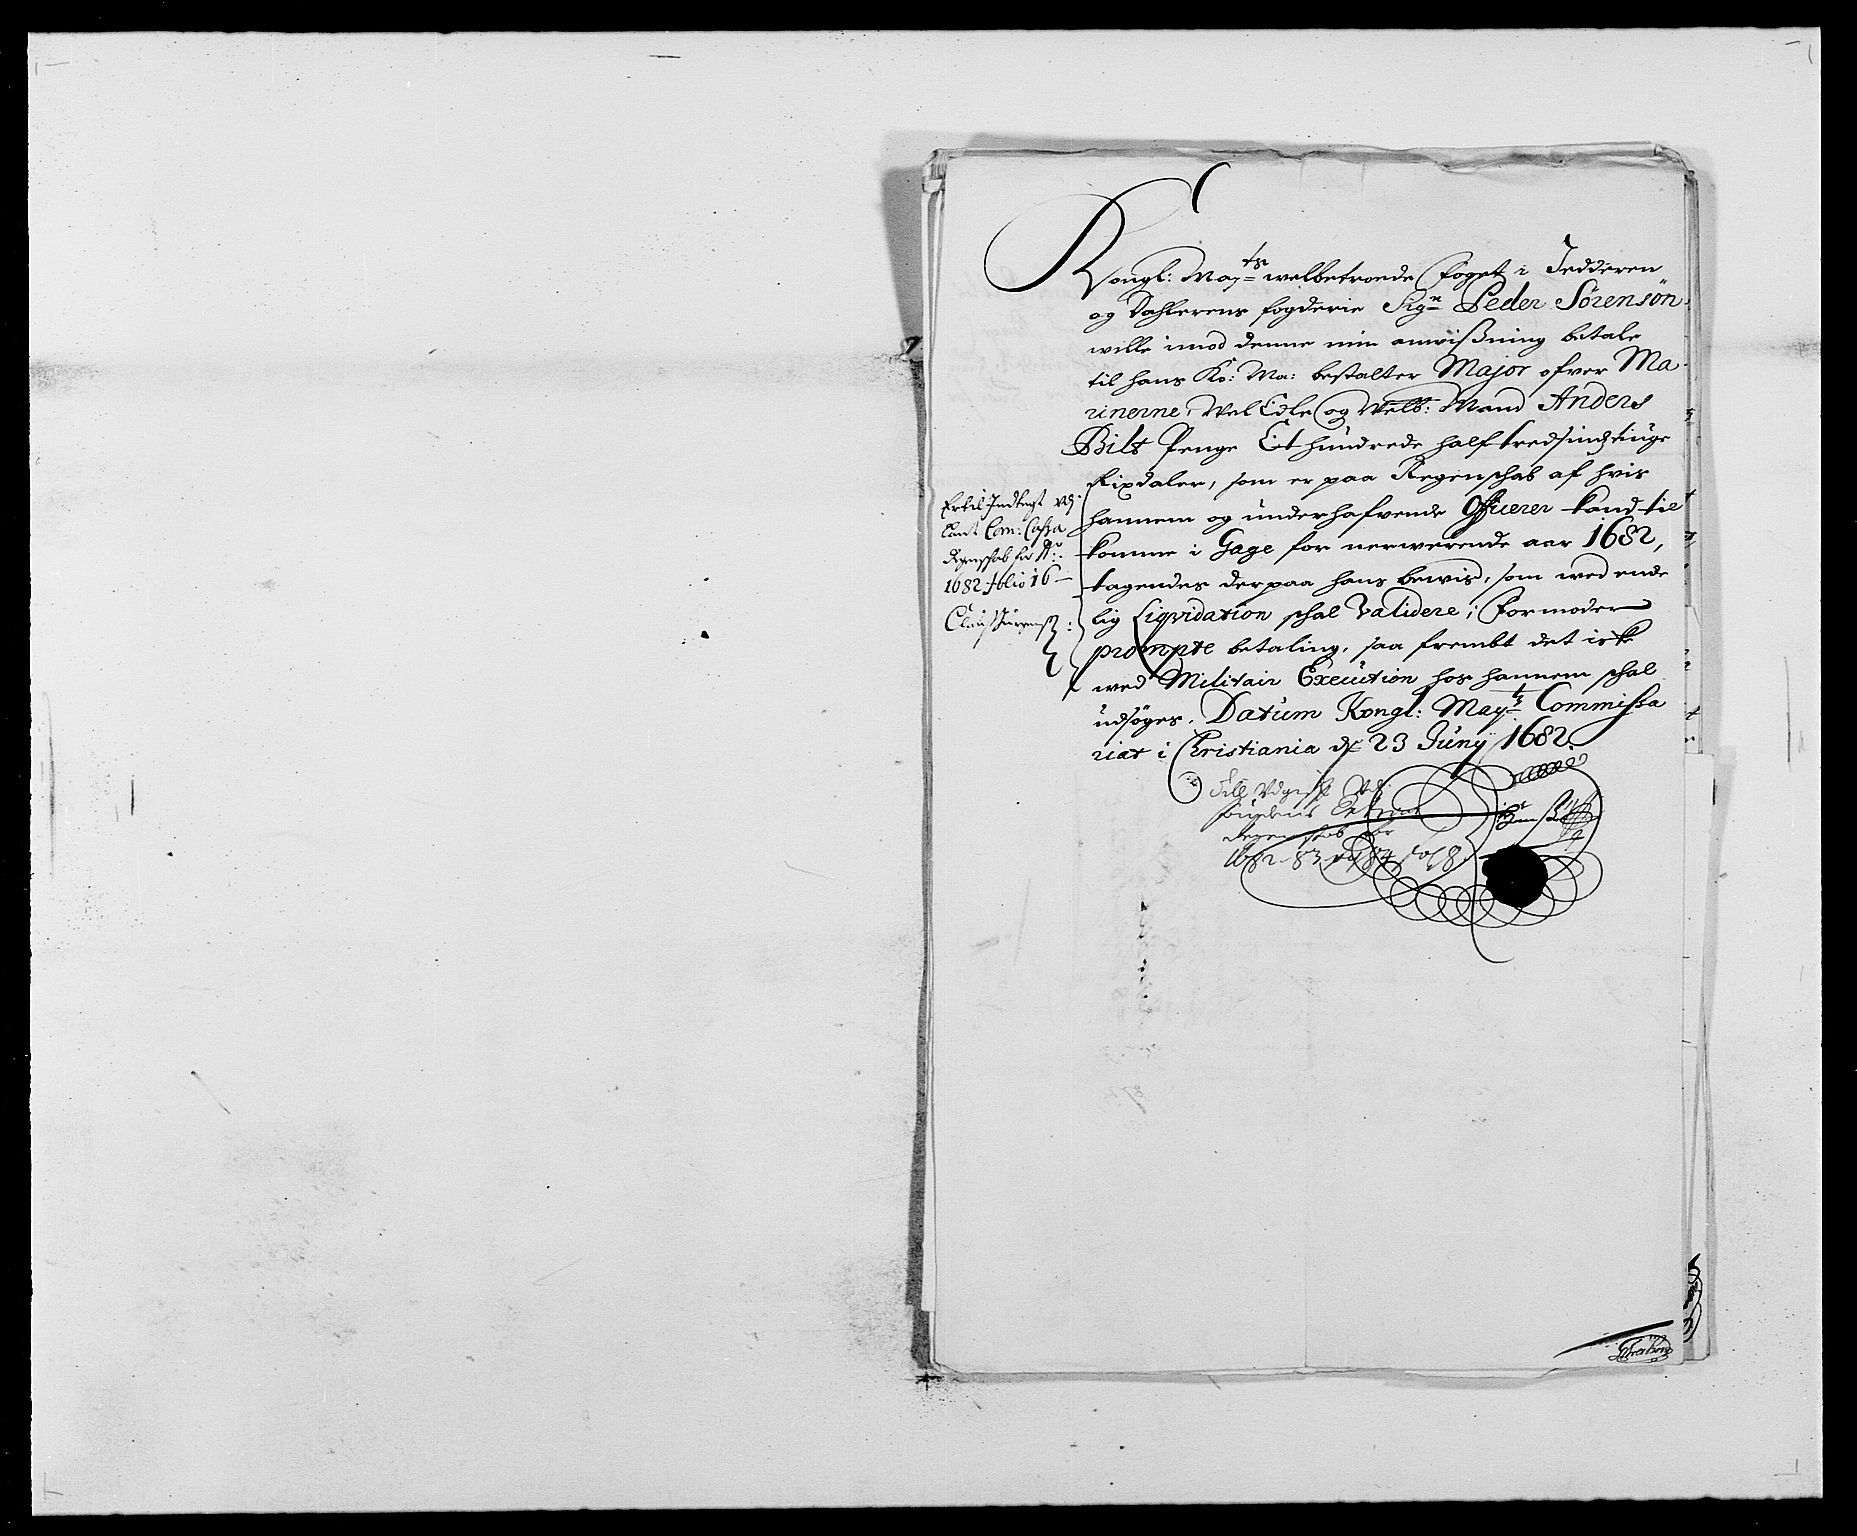 Kongl: Mayts welbetroede Foget i Jedderen
og Dahlerens fogderie Sigr Peder Sörensön
wille imod denne min anwißning betale
til hans Ko: Ma: bestalter Major ofver Ma
rinerne, Wel Edle og Welb: Mand Anders
Bilt Penge Et hundrede half tredsindstiuge
Rixdaler, som er paa Regenschab af hvis
hannem og underhafvende Officerer kand til
komme i Gage for nerwerende aar 1682,
tagendes derpaa hans bewis, som wed ende
lig Liqvidation schal Validere; formoder
prompte betaling, saa frembt det icke
wed Militair Execution hos hannem schal
udsöges. Datum Kongl: Mayts Commissa
riat i Christiania dn 23 Juny 1682.
Er til Indtegt udj
Com: Cassa
Regenschab for Ao:
1682 folio 16
Claus Jürgens:
Till Udgift udj
Regenskab for
1682. 83 og 84 fol 8